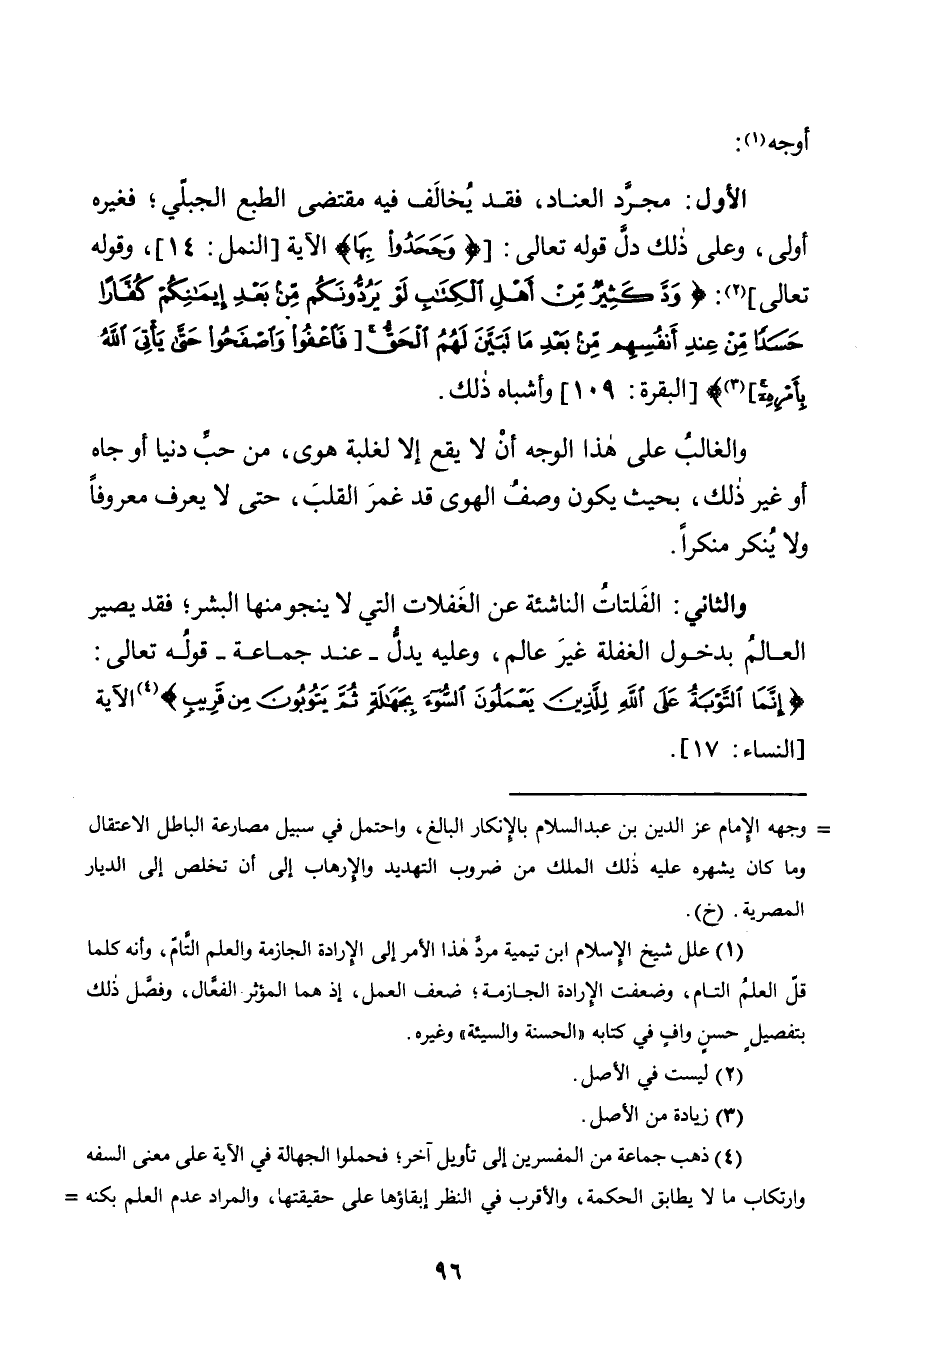 أوجه(١):
الأول: مجرَّد العناد، فقد يُخالَف فيه مقتضى الطبع الجبلّي؛ فغيره
أولى، وعلى ذٰلك دلَّ قوله تعالى: [﴿وَجَحَدُواْ بِهَا﴾ الآية [النمل: ١٤]، وقوله
تعالى](٢): ﴿وَدَّ كَثِيرٌ مِّنْ أَهْلِ ٱلْكِتَٰبِ لَوْ يَرُدُّونَكُم مِّنۢ بَعْدِ إِيمَٰنِكُمْ كُفَّارًا
حَسَدًا مِّنْ عِندِ أَنفُسِهِم مِّنۢ بَعْدِ مَا تَبَيَّنَ لَهُمُ ٱلْحَقُّ [فَٱعْفُواْ وَٱصْفَحُواْ حَتَّىٰ يَأْتِىَ ٱللَّهُ
بِأَمْرِهِۦٓ](٣)﴾ [البقرة: ١٠٩] وأشباه ذٰلك.
والغالبُ على هٰذا الوجه أنْ لا يقع إلا لغلبة هوى، من حبِّ دنيا أو جاه
أو غير ذٰلك، بحيث يكون وصفُ الهوى قد غمرَ القلبَ، حتى لا يعرف معروفاً
ولا يُنكر منكراً.
والثاني: الفَلتاتُ الناشئة عن الغَفلات التي لا ينجو منها البشر؛ فقد يصير
العالمُ بدخول الغفلة غيرَ عالم، وعليه يدلُّ ـ عند جماعة ـ قولُه تعالى:
﴿إِنَّمَا ٱلتَّوْبَةُ عَلَى ٱللَّهِ لِلَّذِينَ يَعْمَلُونَ ٱلسُّوٓءَ بِجَهَٰلَةٍ ثُمَّ يَتُوبُونَ مِن قَرِيبٍ﴾(٤) الآية
[النساء: ١٧].
= وجهه الإمام عز الدين بن عبدالسلام بالإنكار البالغ، واحتمل في سبيل مصارعة الباطل الاعتقال
وما كان يشهره عليه ذٰلك الملك من ضروب التهديد والإرهاب إلى أن تخلص إلى الديار
المصرية. (خ).
(١) علل شيخ الإسلام ابن تيمية مردَّ هٰذا الأمر إلى الإرادة الجازمة والعلم التَّامّ، وأنه كلما
قلّ العلمُ التام، وضعفت الإرادة الجازمة؛ ضعف العمل، إذ هما المؤثر الفعَّال، وفصَّل ذٰلك
بتفصيلٍ حسنٍ وافٍ في كتابه «الحسنة والسيئة» وغيره.
(٢) ليست في الأصل.
(٣) زيادة من الأصل.
(٤) ذهب جماعة من المفسرين إلى تأويل آخر؛ فحملوا الجهالة في الآية على معنى السفه
وارتكاب ما لا يطابق الحكمة، والأقرب في النظر إبقاؤها على حقيقتها، والمراد عدم العلم بكنه =
٩٦